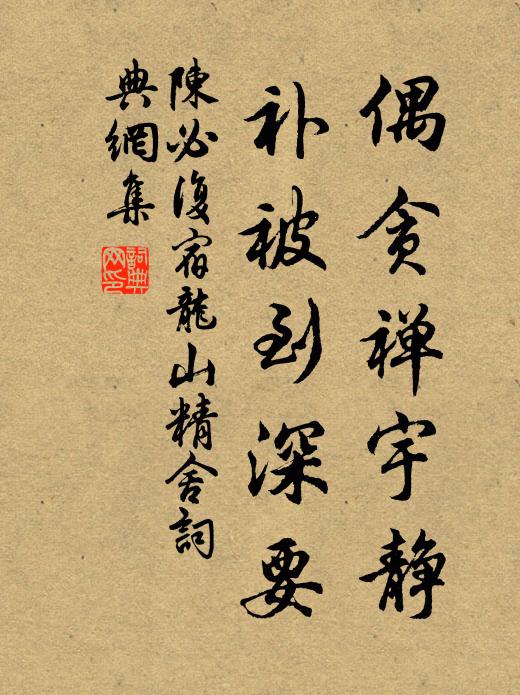 偶贪禅宇静
补被到深要
陳必復宿龍山精舍詞
典網集
詞典
网印